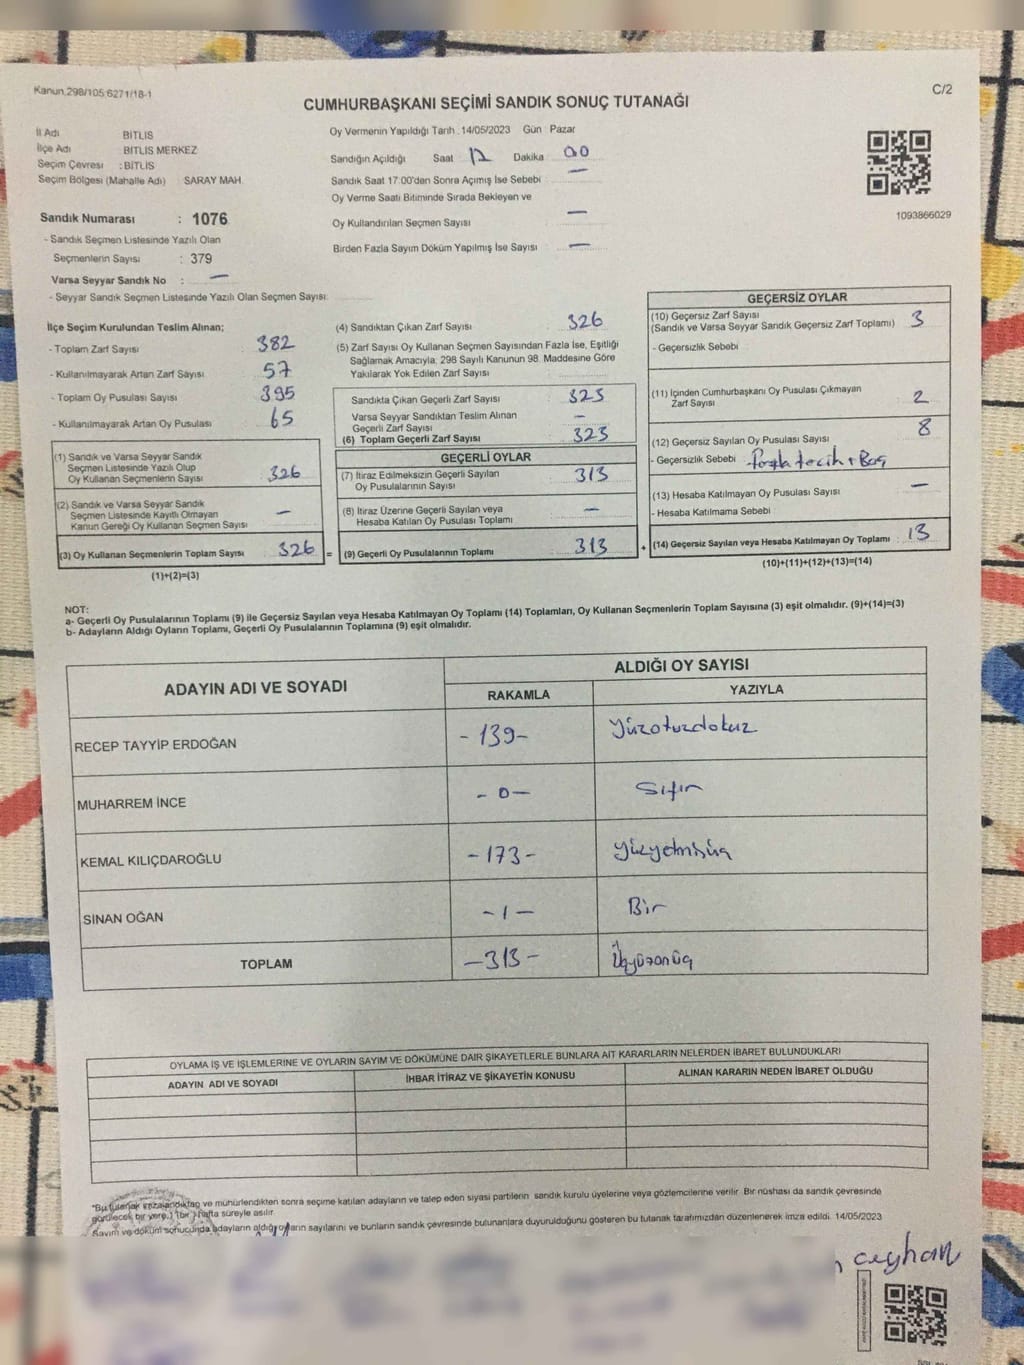 Kanun.298/105;6271/18-1
C/2
CUMHURBAŞKANI SEÇİMİ SANDIK SONUÇ TUTANAĞI
İl Adı BİTLİS
İlçe Adı BİTLİS MERKEZ
Seçim Çevresi : BİTLİS
Seçim Bölgesi (Mahalle Adı) SARAY MAH.
Oy Vermenin Yapıldığı Tarih : 14/05/2023 Gün Pazar
Sandığın Açıldığı Saat 17 Dakika 00
Sandık Saat 17:00'den Sonra Açımış İse Sebebi : —
Oy Verme Saati Bitiminde Sırada Bekleyen ve
Oy Kullandırılan Seçmen Sayısı —
Birden Fazla Sayım Döküm Yapılmış İse Sayısı : —
1093866029
Sandık Numarası : 1076
- Sandık Seçmen Listesinde Yazılı Olan
Seçmenlerin Sayısı : 379
Varsa Seyyar Sandık No : —
- Seyyar Sandık Seçmen Listesinde Yazılı Olan Seçmen Sayısı:
İlçe Seçim Kurulundan Teslim Alınan;
- Toplam Zarf Sayısı 382
- Kullanılmayarak Artan Zarf Sayısı 57
- Toplam Oy Pusulası Sayısı 395
- Kullanılmayarak Artan Oy Pusulası 65
(1) Sandık ve Varsa Seyyar Sandık
Seçmen Listesinde Yazılı Olup
Oy Kullanan Seçmenlerin Sayısı 326
(2) Sandık ve Varsa Seyyar Sandık
Seçmen Listesinde Kayıtlı Olmayan
Kanun Gereği Oy Kullanan Seçmen Sayısı —
(3) Oy Kullanan Seçmenlerin Toplam Sayısı 326 =
(1)+(2)=(3)
(4) Sandıktan Çıkan Zarf Sayısı : 326
(5) Zarf Sayısı Oy Kullanan Seçmen Sayısından Fazla İse, Eşitliği
Sağlamak Amacıyla; 298 Sayılı Kanunun 98. Maddesine Göre
Yakılarak Yok Edilen Zarf Sayısı :
Sandıkta Çıkan Geçerli Zarf Sayısı : 323
Varsa Seyyar Sandıktan Teslim Alınan
Geçerli Zarf Sayısı : —
(6) Toplam Geçerli Zarf Sayısı : 323
GEÇERLİ OYLAR
(7) İtiraz Edilmeksizin Geçerli Sayılan
Oy Pusulalarının Sayısı : 313
(8) İtiraz Üzerine Geçerli Sayılan veya
Hesaba Katılan Oy Pusulası Toplamı : —
(9) Geçerli Oy Pusulalarının Toplamı : 313 +
GEÇERSİZ OYLAR
(10) Geçersiz Zarf Sayısı
(Sandık ve Varsa Seyyar Sandık Geçersiz Zarf Toplamı) : 3
- Geçersizlik Sebebi :
(11) İçinden Cumhurbaşkanı Oy Pusulası Çıkmayan
Zarf Sayısı : 2
(12) Geçersiz Sayılan Oy Pusulası Sayısı : 8
- Geçersizlik Sebebi : Fazla tecih + Boş
(13) Hesaba Katılmayan Oy Pusulası Sayısı : —
- Hesaba Katılmama Sebebi :
(14) Geçersiz Sayılan veya Hesaba Katılmayan Oy Toplamı : 13
(10)+(11)+(12)+(13)=(14)
NOT:
a- Geçerli Oy Pusulalarının Toplamı (9) ile Geçersiz Sayılan veya Hesaba Katılmayan Oy Toplamı (14) Toplamları, Oy Kullanan Seçmenlerin Toplam Sayısına (3) eşit olmalıdır. (9)+(14)=(3)
b- Adayların Aldığı Oyların Toplamı, Geçerli Oy Pusulalarının Toplamına (9) eşit olmalıdır.
ADAYIN ADI VE SOYADI
ALDIĞI OY SAYISI
RAKAMLA YAZIYLA
RECEP TAYYİP ERDOĞAN -139- Yüzotuzdokuz
MUHARREM İNCE -0- Sıfır
KEMAL KILIÇDAROĞLU -173- Yüzyetmişüç
SİNAN OĞAN -1- Bir
TOPLAM -313- Üçyüzonüç
OYLAMA İŞ VE İŞLEMLERİNE VE OYLARIN SAYIM VE DÖKÜMÜNE DAİR ŞİKAYETLERLE BUNLARA AİT KARARLARIN NELERDEN İBARET BULUNDUKLARI
ADAYIN ADI VE SOYADI İHBAR İTİRAZ VE ŞİKAYETİN KONUSU ALINAN KARARIN NEDEN İBARET OLDUĞU
*Bu tutanak imzalandıktan ve mühürlendikten sonra seçime katılan adayların ve talep eden siyasi partilerin sandık kurulu üyelerine veya gözlemcilerine verilir. Bir nüshası da sandık çevresinde
görülecek bir yere,) (bir ) hafta süreyle asılır.
Sayım ve döküm sonucunda adayların aldığı oyların sayılarını ve bunların sandık çevresinde bulunanlara duyurulduğunu gösteren bu tutanak tarafımızdan düzenlenerek imza edildi. 14/05/2023
ceyhan